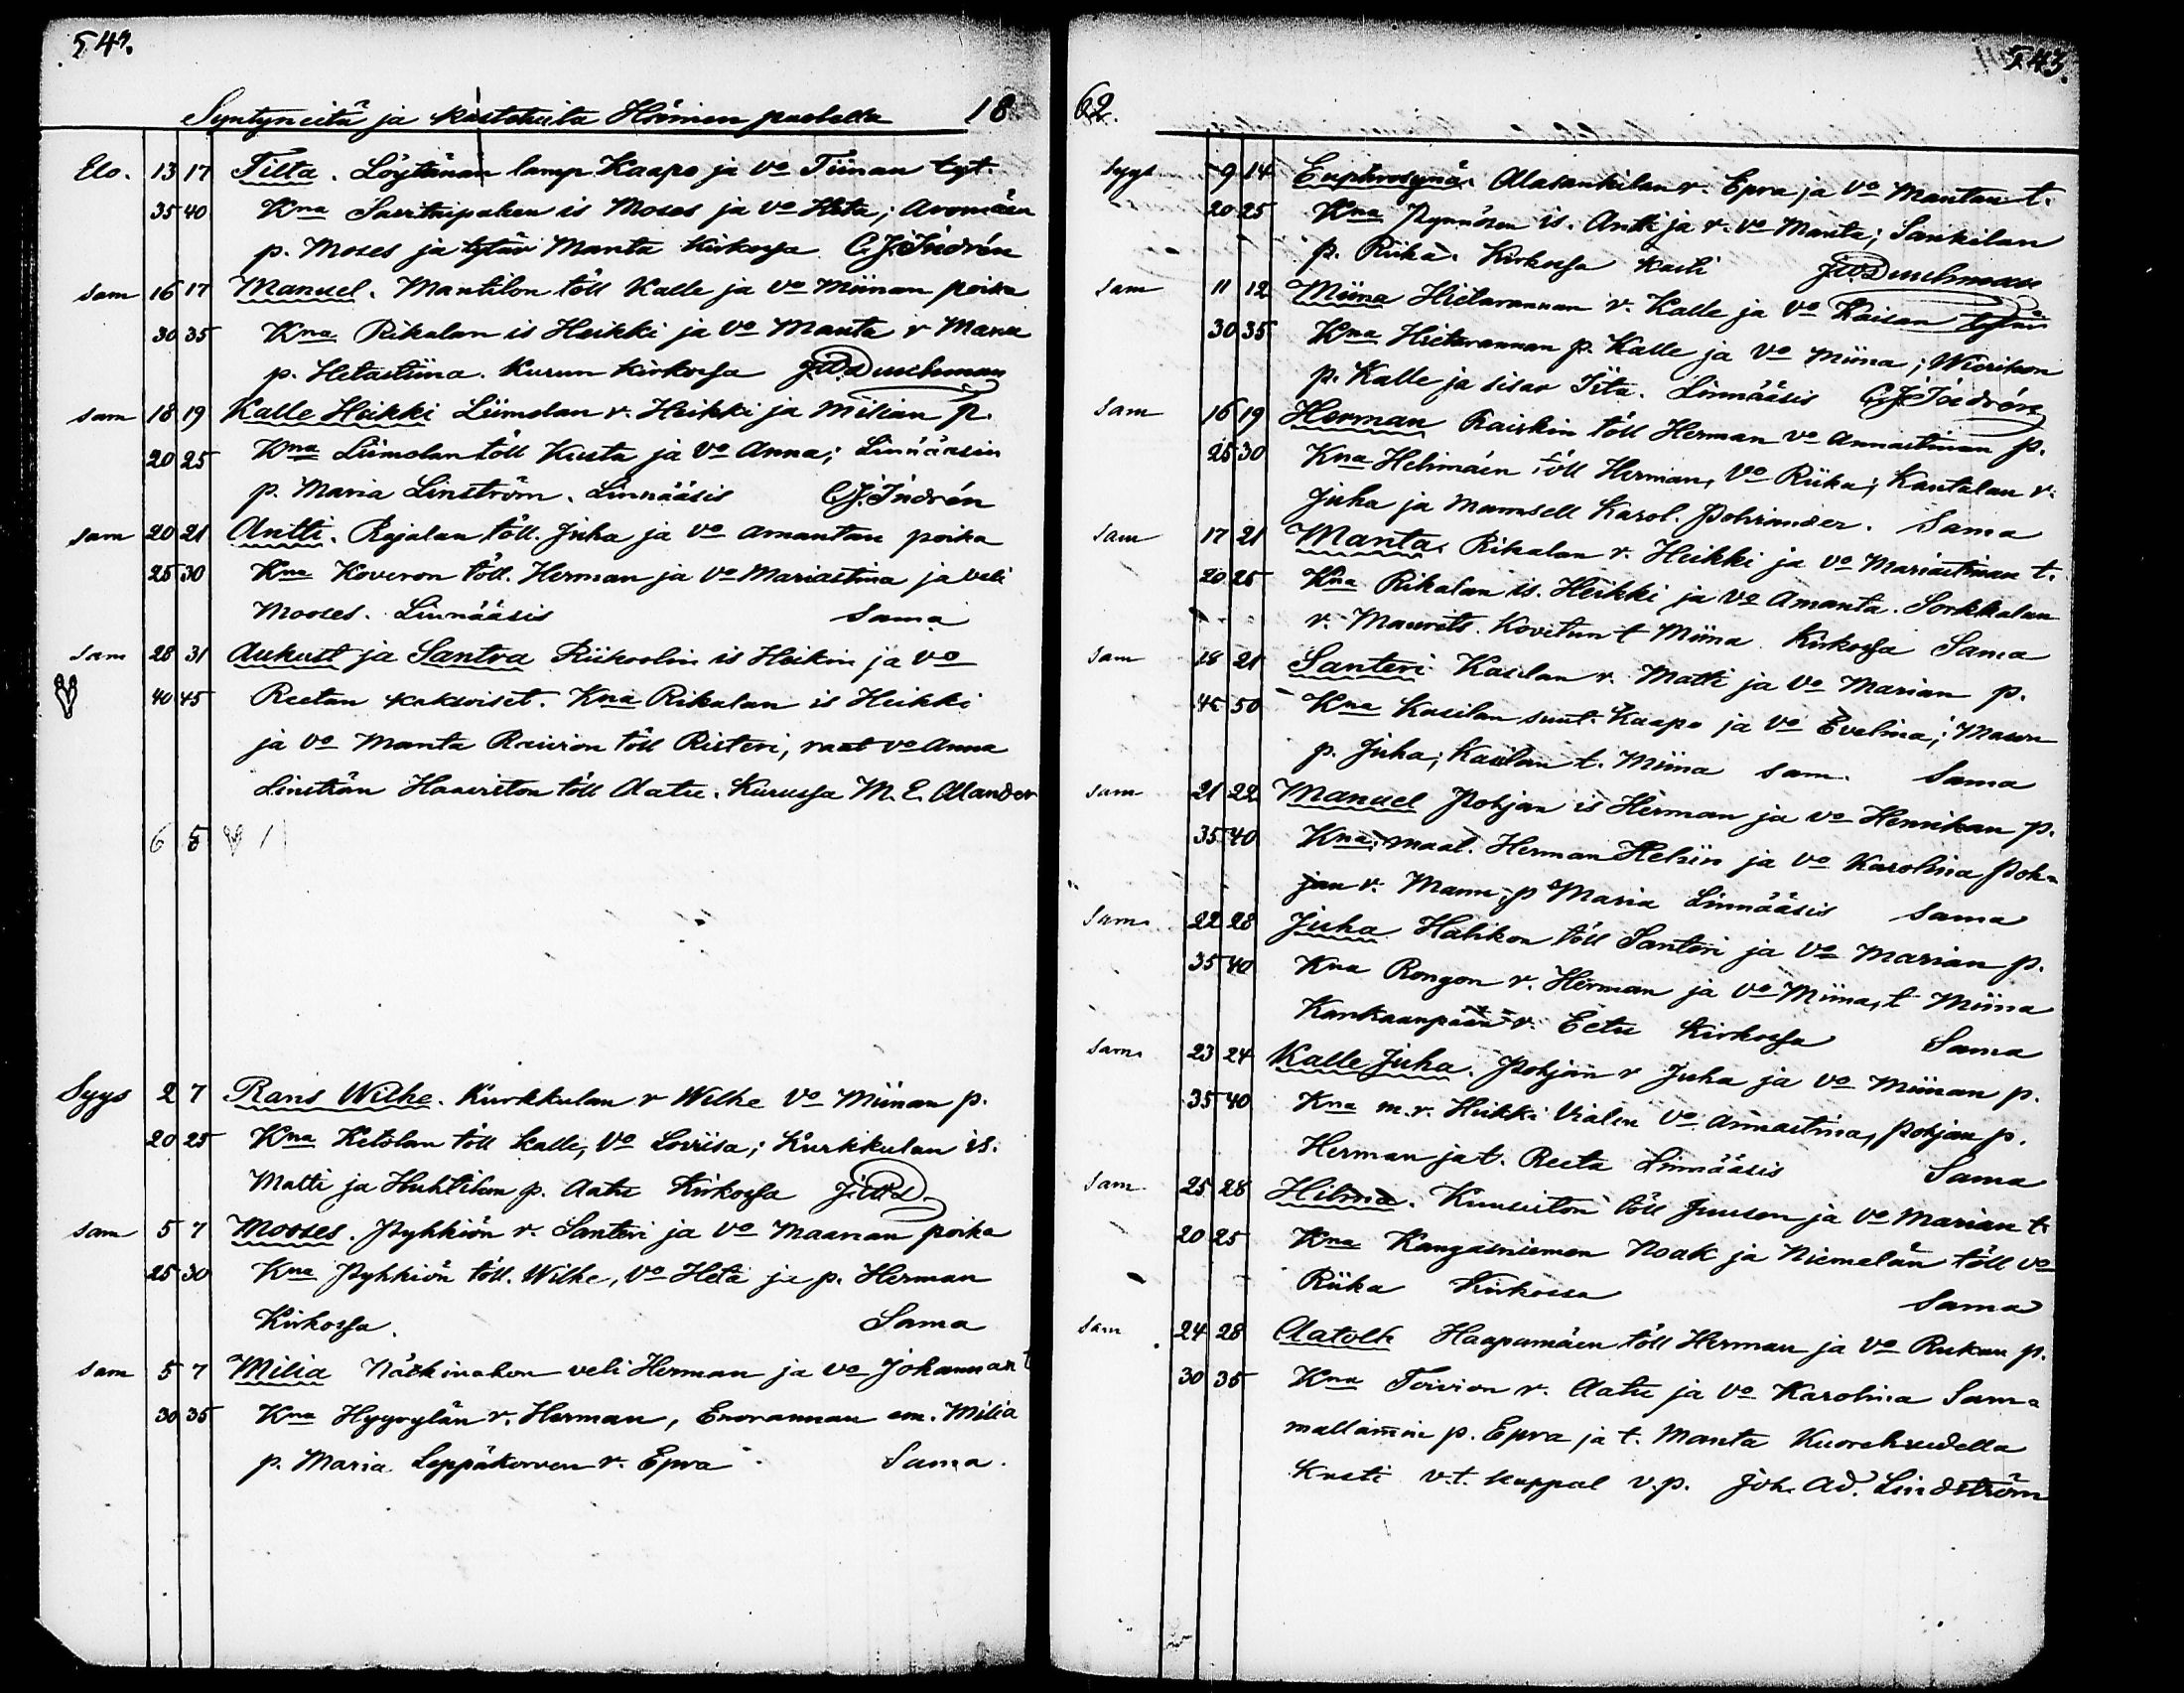 542.
Syntyneitä ja kastetuita Hämeen puolella 18
Elo. 13 17 Tilta. Löytänän lamp Kaapo ja Vo Tiinan tyt.
35 40 Kna Savitaipaleen is Moses ja Vo Heta; Aromäen
p. Moses ja tytär Manta Kirkossa C.J. Indrén
Sam 16 17 Manuel. Mantilon töll Kalle ja Vo Miinan poika
30 35 Kna Rikalan is Heikki ja Vo Manta r Manu
p. Hetastiina. Kurun Kirkossa J.W. Duchman
Sam 18 19 Kalle Heikki Liimolan r. Heikki ja Milian p.
20 25 Kna Liimolan töll Kusta ja Vo Anna; Linnääsin
p. Maria Linström. Linnääsis C.J. Indrén
Sam 20 21 Antti. Rajalan töll. Juha ja Vo Amantan poika
25 30 Kna Koveron töll. Herman ja Vo Mariastina ja veli
Mooses. Linnääsis Sama
Sam 28 31 Aukust ja Santra Riikoolin is Heikin ja Vo
40 45 Reetan kaksoiset. Kna Rikalan is Heikki
ja Vo Manta Raivion töll Risteri, raat Vo Anna
Linström Haaviston töll Aatu. Kurussa M.E. Alander
6 5 1
Syys 2 7 Rans Wilhe. Kurkkulan r Wilhe Vo Miinan p.
20 25 Kna Ketolan töll Kalle, Vo Loviisa; Kurkkulan is.
Matti ja Huhtilun p. Aatu Kirkossa J.W.D.
Sam 5 7 Mooses. Pyhkiön r. Santeri ja Vo Maarian poika
25 30 Kna Pyhkiön töll. Wilhe, Vo Heta ja p. Herman
Kirkossa. Sama
Sam 5 7 Milia Näskinahon veli Herman ja Vo Johannan t
30 35 Kna Hyyrylän r. Herman, Enorannan em. Milia
p. Maria Leppäkorven r. Epra Sama.
543.
62.
Syys 9 14 Euphrosynä. Alasankilan r. Epra ja Vo Mantan t.
20 25 Kna Pynnösen is. Antti ja r. Vo Manta; Sankilan
p. Riika. Kirkossa kasti J.W. Duchman
Sam 11 12 Miina Hietarannan r. Kalle ja Vo Kaisan tytär
30 35 Kna Hietarannan p. Kalle ja Vo Miina; Wiorikon
p. Kalle ja sisar Iita. Linnääsis C.J. Indrén
Sam 16 19 Herman Raiskin töll Herman Vo Annastinan p.
25 30 Kna Helimäen töll Herman, Vo Riika; Kantalan r.
Juha ja Mamsell Karol. Pohriander. Sama
Sam 17 21 Manta. Rikalan r. Heikki ja Vo Mariastinan t.
20 25 Kna Rikalan is. Heikki ja Vo Amanta. Sorkkalan
r. Maurits. Kovetun t Miina Kirkossa Sama
Sam 18 21 Santeri Kasilan r. Matti ja Vo Marian p.
45 50 Kna Kasilan suut. Kaapo ja Vo Evelina; Mason
p. Juha; Kasilan t. Miina sam. Sama
Sam 21 22 Manuel Pohjan is Herman ja Vo Henrikan p.
35 40 Kna; maal. Herman Helsin ja Vo Karolina Poh=
jan r. Manu, p Maria Linnääsis Sama
Sam 22 28 Juha Halikon töll Santeri ja Vo Marian p.
35 40 Kna Rongon r. Herman ja Vo Miina, t Miina
Kankaanpään r. Eetu Kirkossa Sama
Sam. 23 24 Kalle Juha. Pohjan r Juha ja Vo Miinan p.
35 40 Kna m.r. Heikki Vialen Vo Annastina, Pohjan p.
Herman ja t. Reeta Linnääsis Sama
Sam 25 28 Hilma. Kuusiston töll Juusen ja Vo Marian t.
20 25 Kna Kangasniemen Noak ja Niemelän töll Vo
Riika Kirkossa Sama
Sam 24 28 Aatolh Haapamäen töll Herman ja Vo Ruikan p.
30 35 Kna Toivion r. Aatu ja Vo Karolina Sam=
mallammin p. Epra ja t. Manta Kuorehvedella
Kasti v.t. kappal v.p. Joh. Ad. Lindström